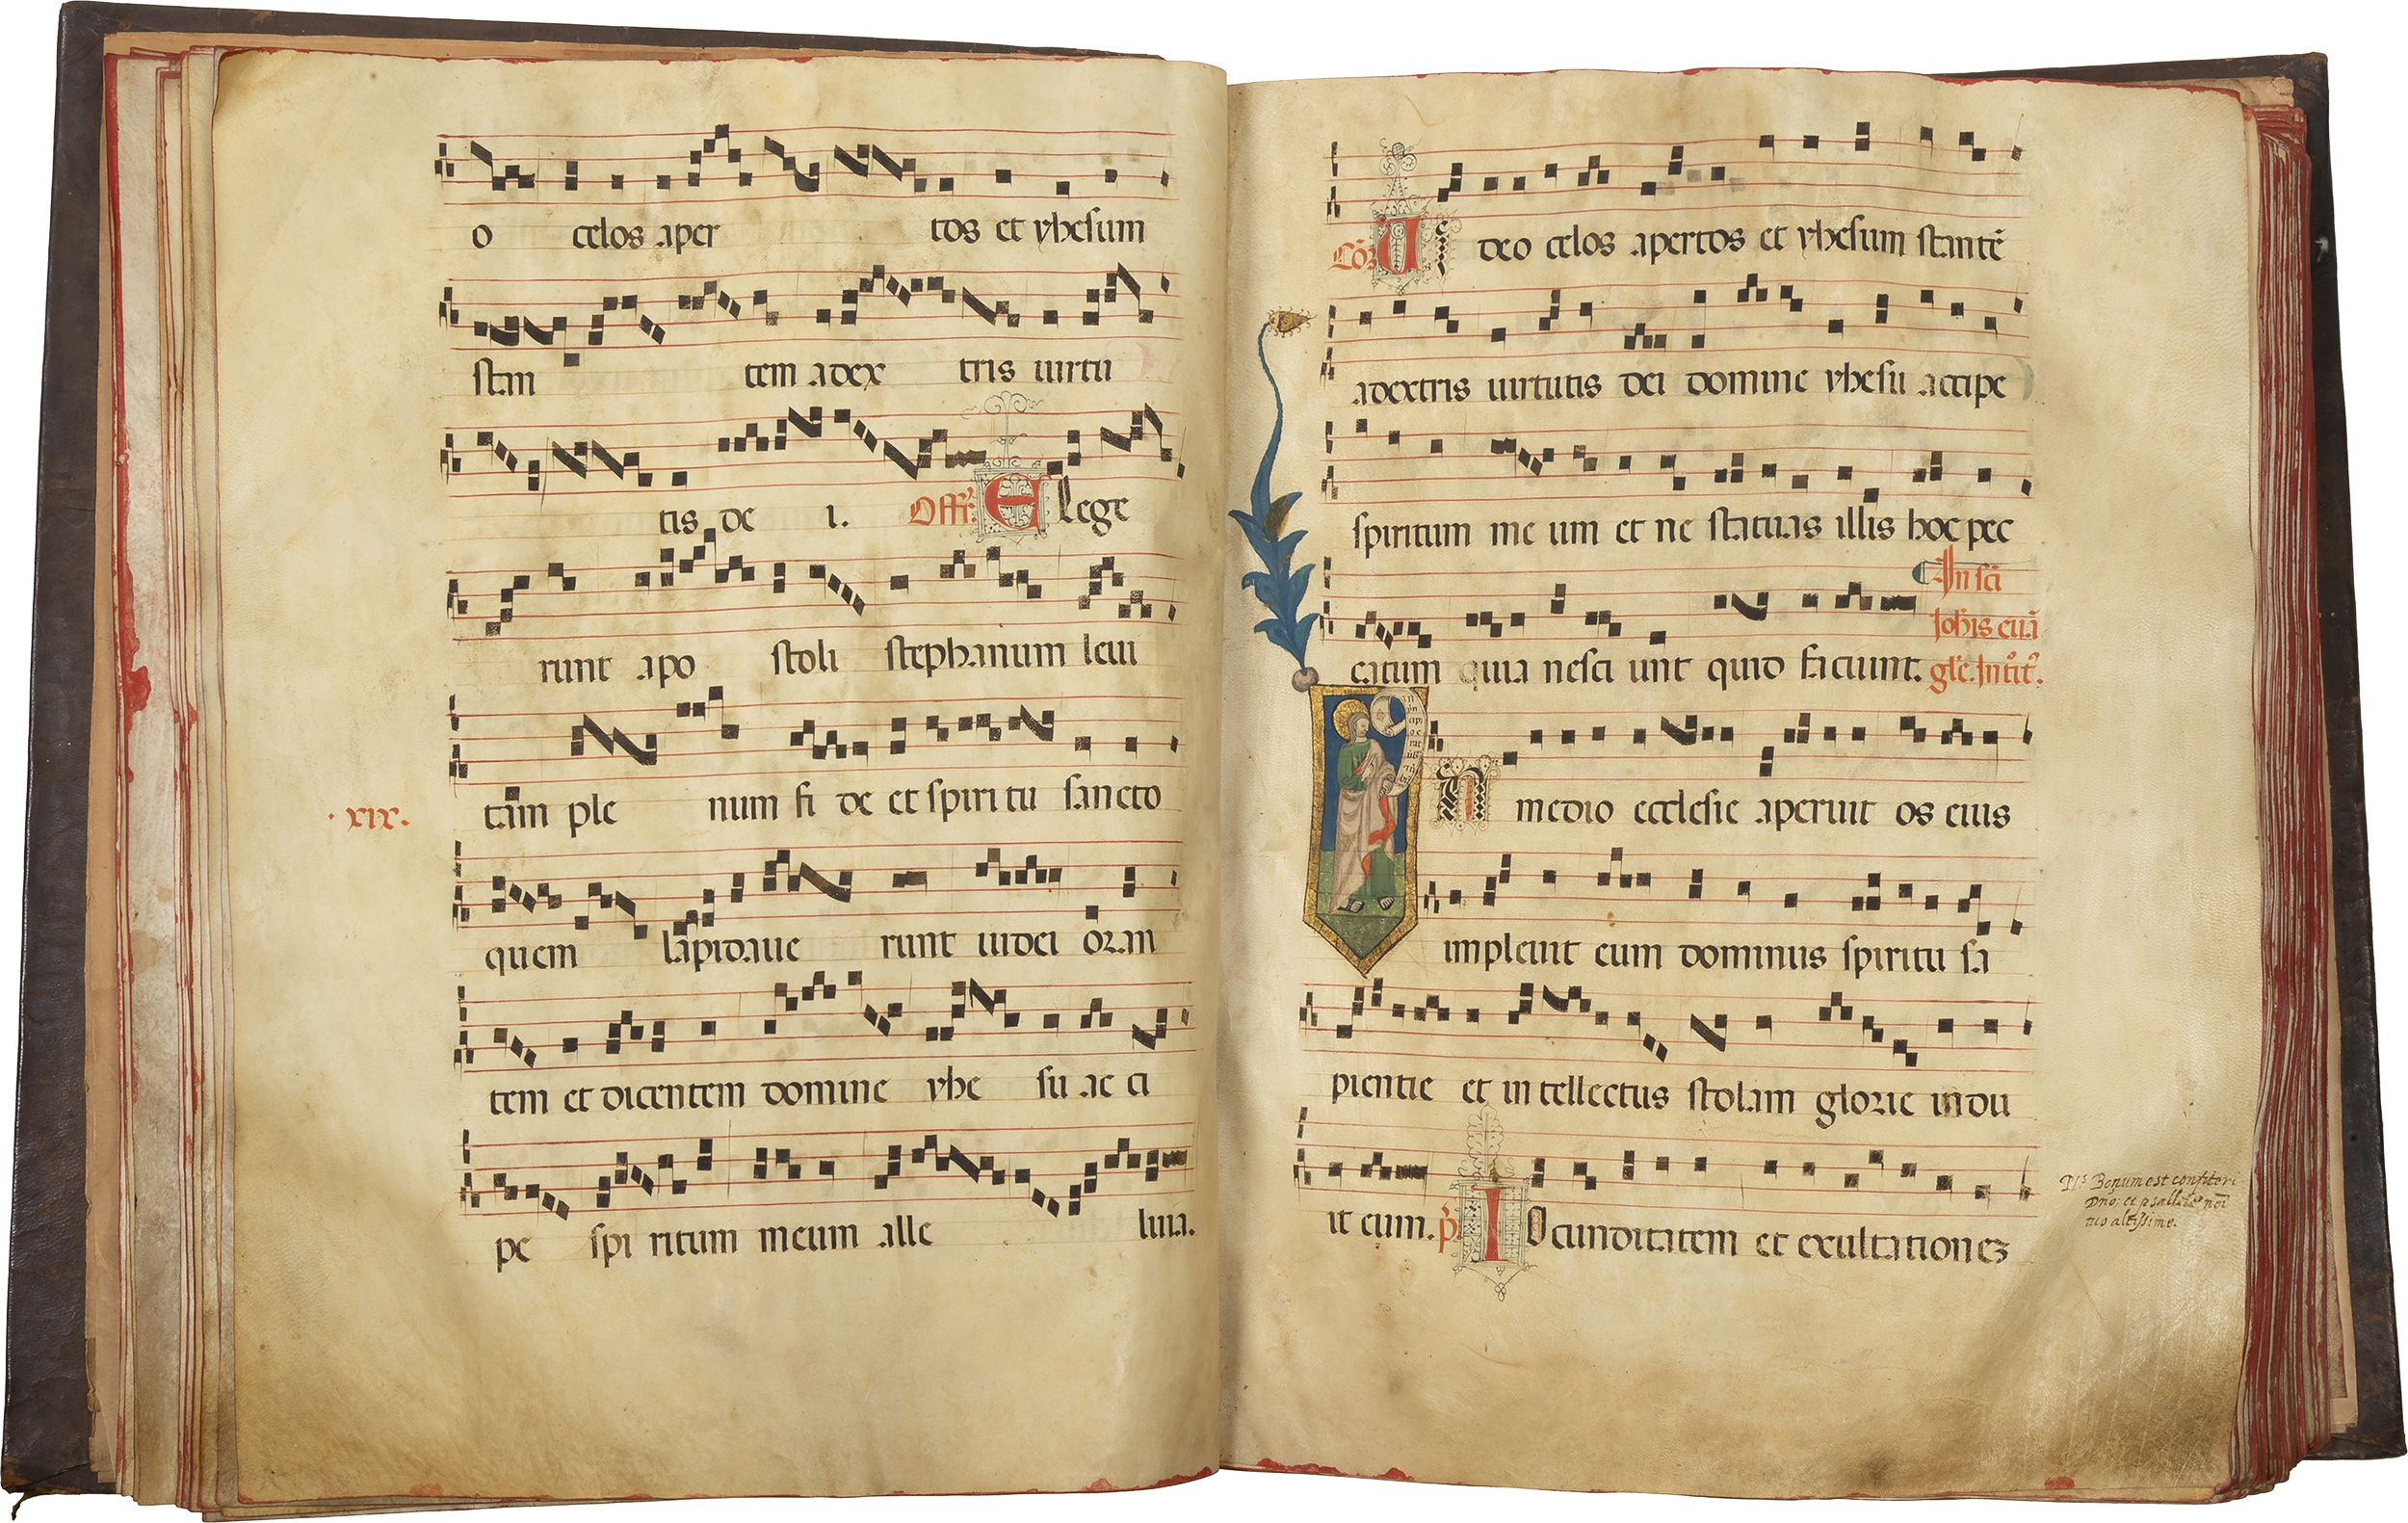 o celos aper tos et yhesum
stan tem adex tris uirtu
tis de i. Offr. Elege
runt apo stoli stephanum leui
tam ple num fi de et spiri tu sancto
.xix.
quem lapidaue runt iudei oran
tem et dicentem domine yhe su ac ci
pe spi ritum meum alle luia.
Cōᷓ. Ui deo celos apertos et yhesum stantē
adextris uirtutis dei domine yhesu accipe
spiritum me um et ne statuas illis hoc pec
In sc̄i
catum quia nesci unt quid faciunt.
Ioh̄is euā
gl̄e. Introit.
In medio ecclesie aperuit os eius
impleuit eum dominus spiritu sa
pientie et in tellectus stolam glorie indu
it eum. p̄. Iocunditatem et exultationez
Ps Bonum est confiteri
Dno: et psallere noi
tuo altissime.